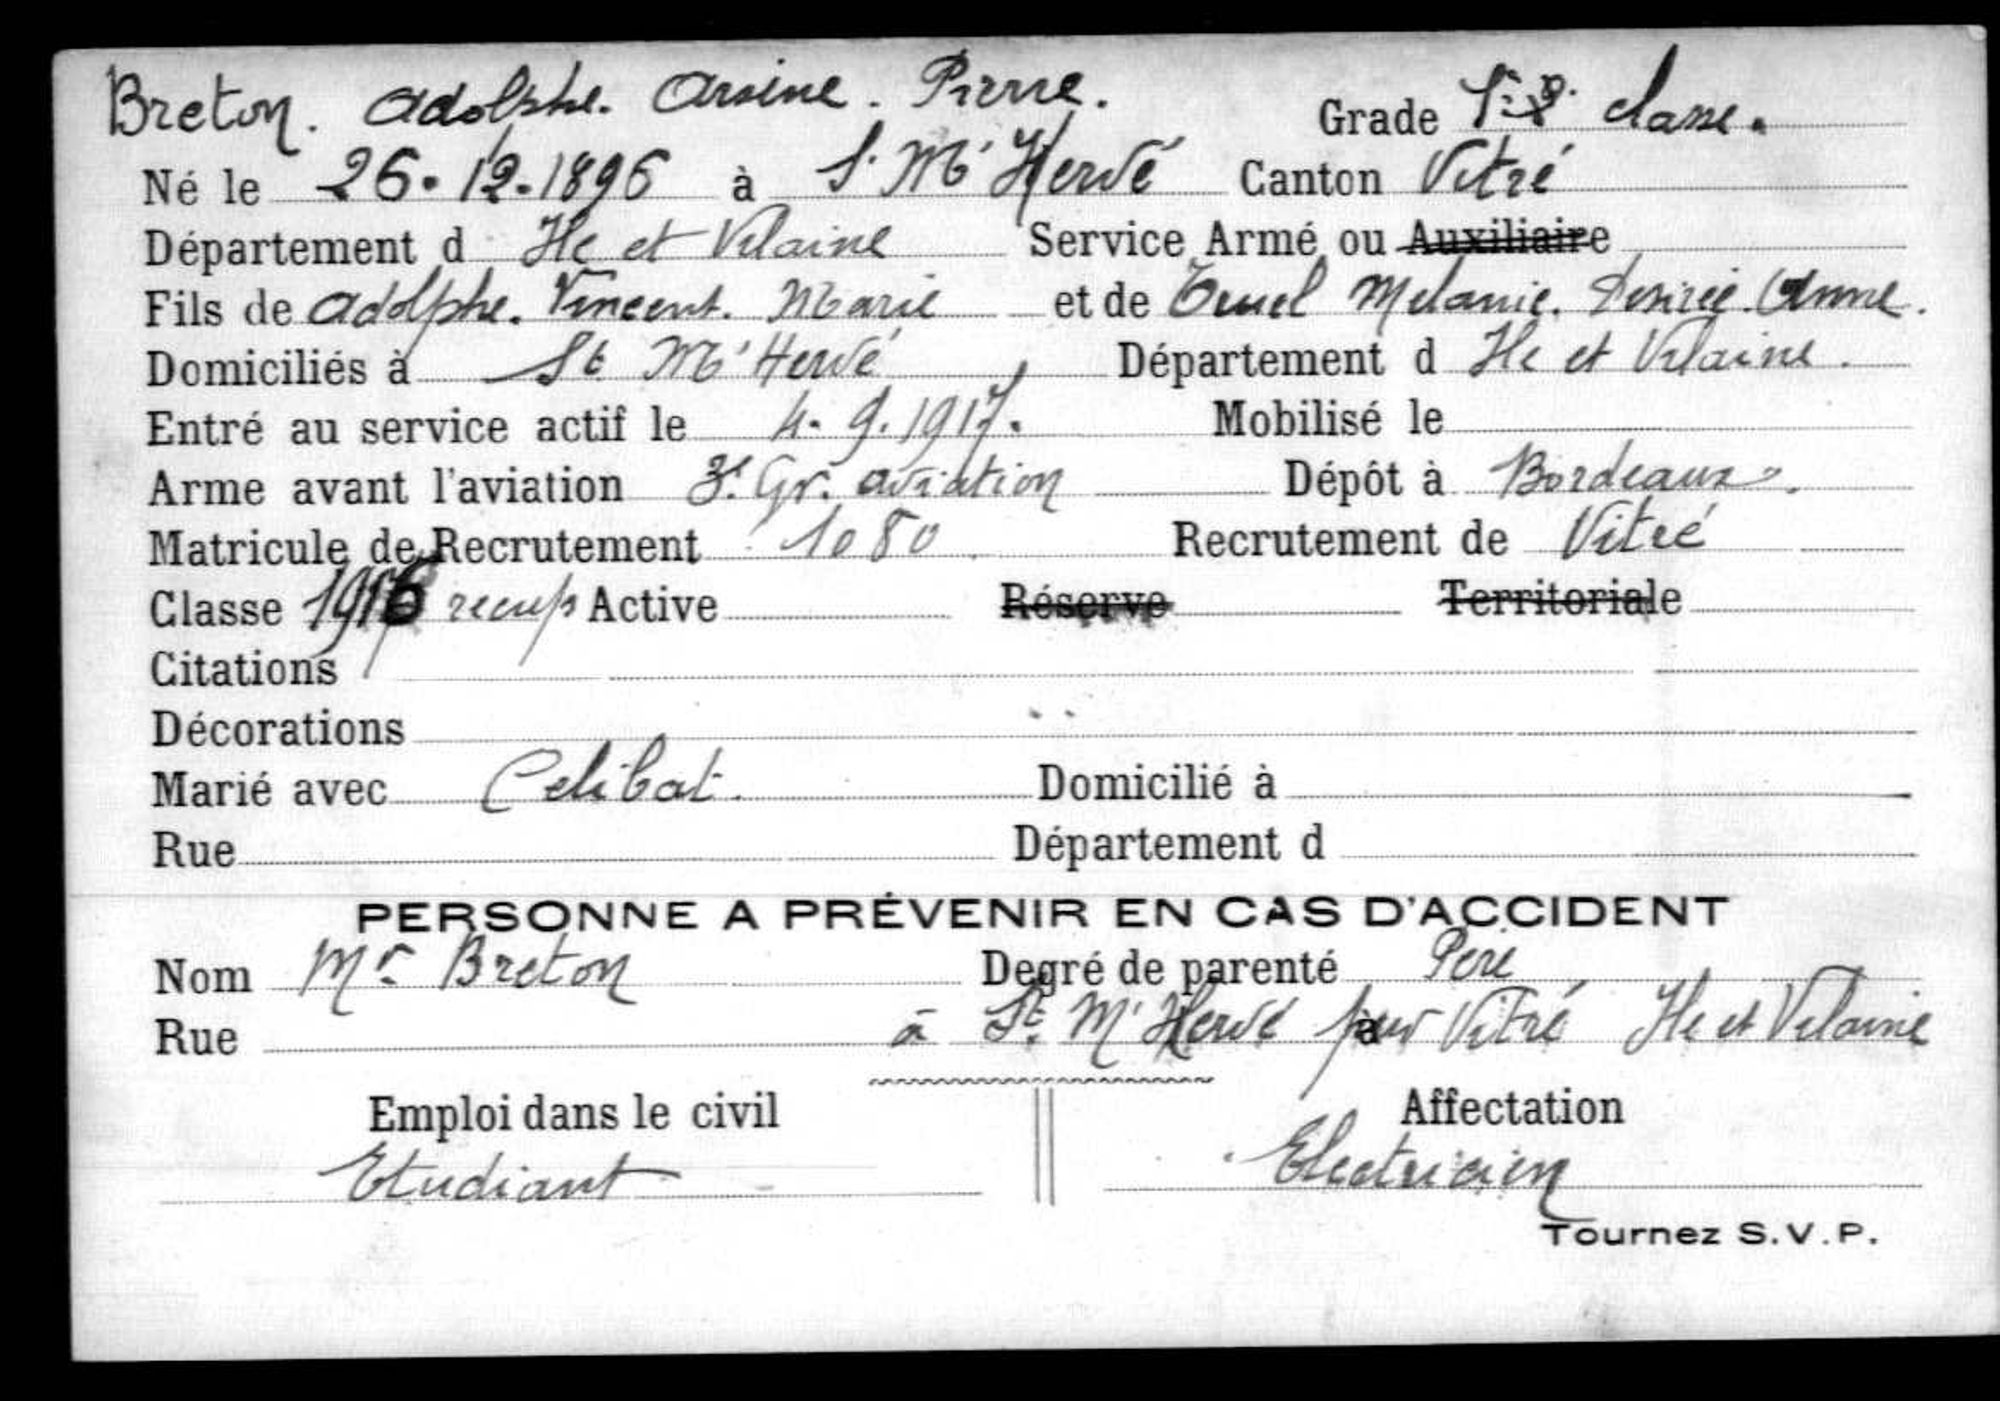 Breton. Adolphe. Arsène. Pierre. Grade classe.
Né le 26.12.1896 à St M'Hervé Canton Vitré
Département d Ille et Vilaine Service Armé ou Auxiliaire
Fils de Adolphe. Vincent. Marie et de Melanie. Desirée. Anne.
Domiciliés à St M'Hervé Département d Ille et Vilaine.
Entré au service actif le 4.9.1917. Mobilisé le
Arme avant l'aviation 3e Gr. aviation Dépôt à Bordeaux.
Matricule de Recrutement 1080 Recrutement de Vitré
Classe 1916 recup Active Réserve Territoriale
Citations
Décorations
Marié avec Celibat. Domicilié à
Rue Département d
PERSONNE A PRÉVENIR EN CAS D'ACCIDENT
Nom Mr Breton Degré de parenté Père
Rue à St M'Hervé par Vitré Ille et Vilaine
Emploi dans le civil Affectation
Etudiant Electricien
Tournez S.V.P.